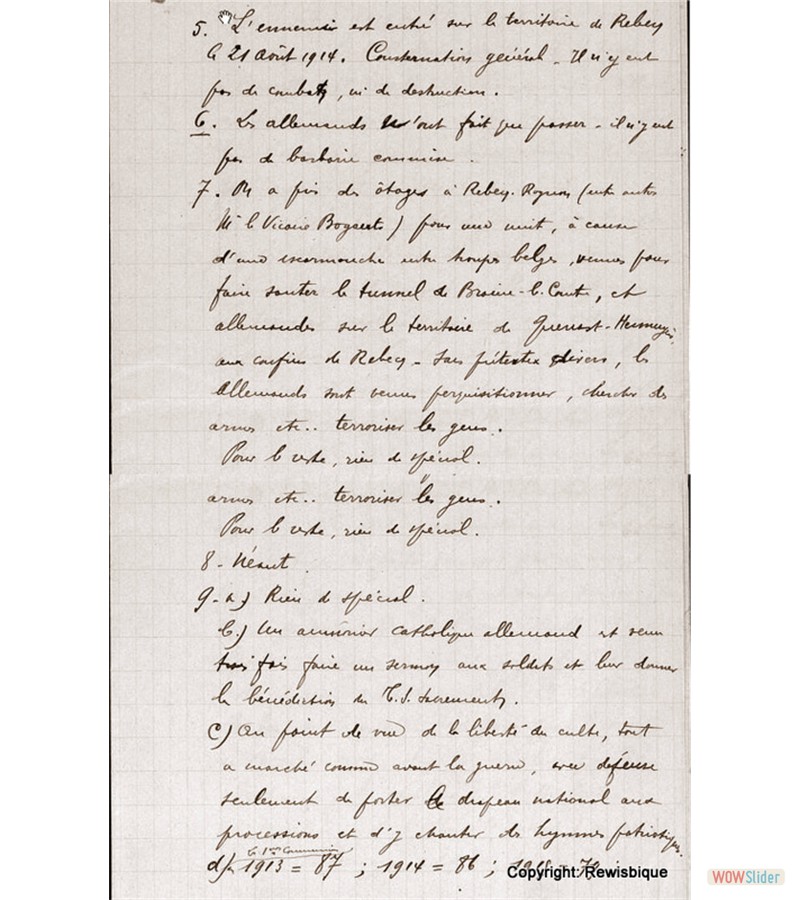 5. L'ennemi est entré sur le territoire de Rebecq
le 21 Août 1914. Consternation général - Il n'y eut
pas de combats, ni de destruction.
6. Les allemands n'ont fait que passer - il n'y eut
pas de barbarie commise.
7. On a pris des ôtages à Rebecq-Rognon (entre autres
Mr le Vicaire Bogaerts) pour une nuit, à cause
d'une escarmouche entre troupes belges, venues pour
faire sauter le tunnel de Braine-le-Comte, et
allemandes sur le territoire de Quenast-Hennuyères,
aux confins de Rebecq - Sous prétextes divers, les
Allemands sont venus perquisitionner, chercher des
armes etc.. terroriser les gens.
Pour le reste, rien de spécial.
armes etc.. terroriser les gens.
Pour le reste, rien de spécial.
8 - Néant.
9 - a) Rien de spécial.
b.) Un aumônier catholique allemand est venu
trois fois faire un sermon aux soldats et leur donner
la bénédiction du T.S. Sacrement.
c) Au point de vue de la liberté du culte, tout
a marché comme avant la guerre, avec défense
seulement de porter le drapeau national aux
processions et d'y chanter des hymnes patriotiques.
d) 1913 = 87 ; 1914 = 86 ;
Copyright: Rewisbique
WOWSlider